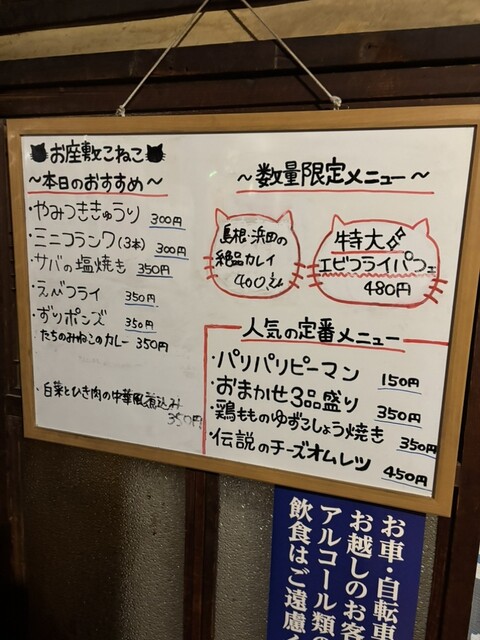 お座敷こねこ
~本日のおすすめ~
・やみつききゅうり 300円
・ミニフランク(3本) 300円
・サバの塩焼き 350円
・えびフライ 350円
・ずりポンズ 350円
・たちのみねこのカレー 350円
・白菜とひき肉の中華風煮込み
350円
~数量限定メニュー~
島根・浜田の
絶品カレイ
400えん
特大
エビフライパフェ
480円
人気の定番メニュー
・パリパリピーマン 150円
・おまかせ3品盛り 350円
・鶏もものゆずこしょう焼き 350円
・伝説のチーズオムレツ 450円
お車・自転車
お越しのお客
アルコール類
飲食はご遠慮